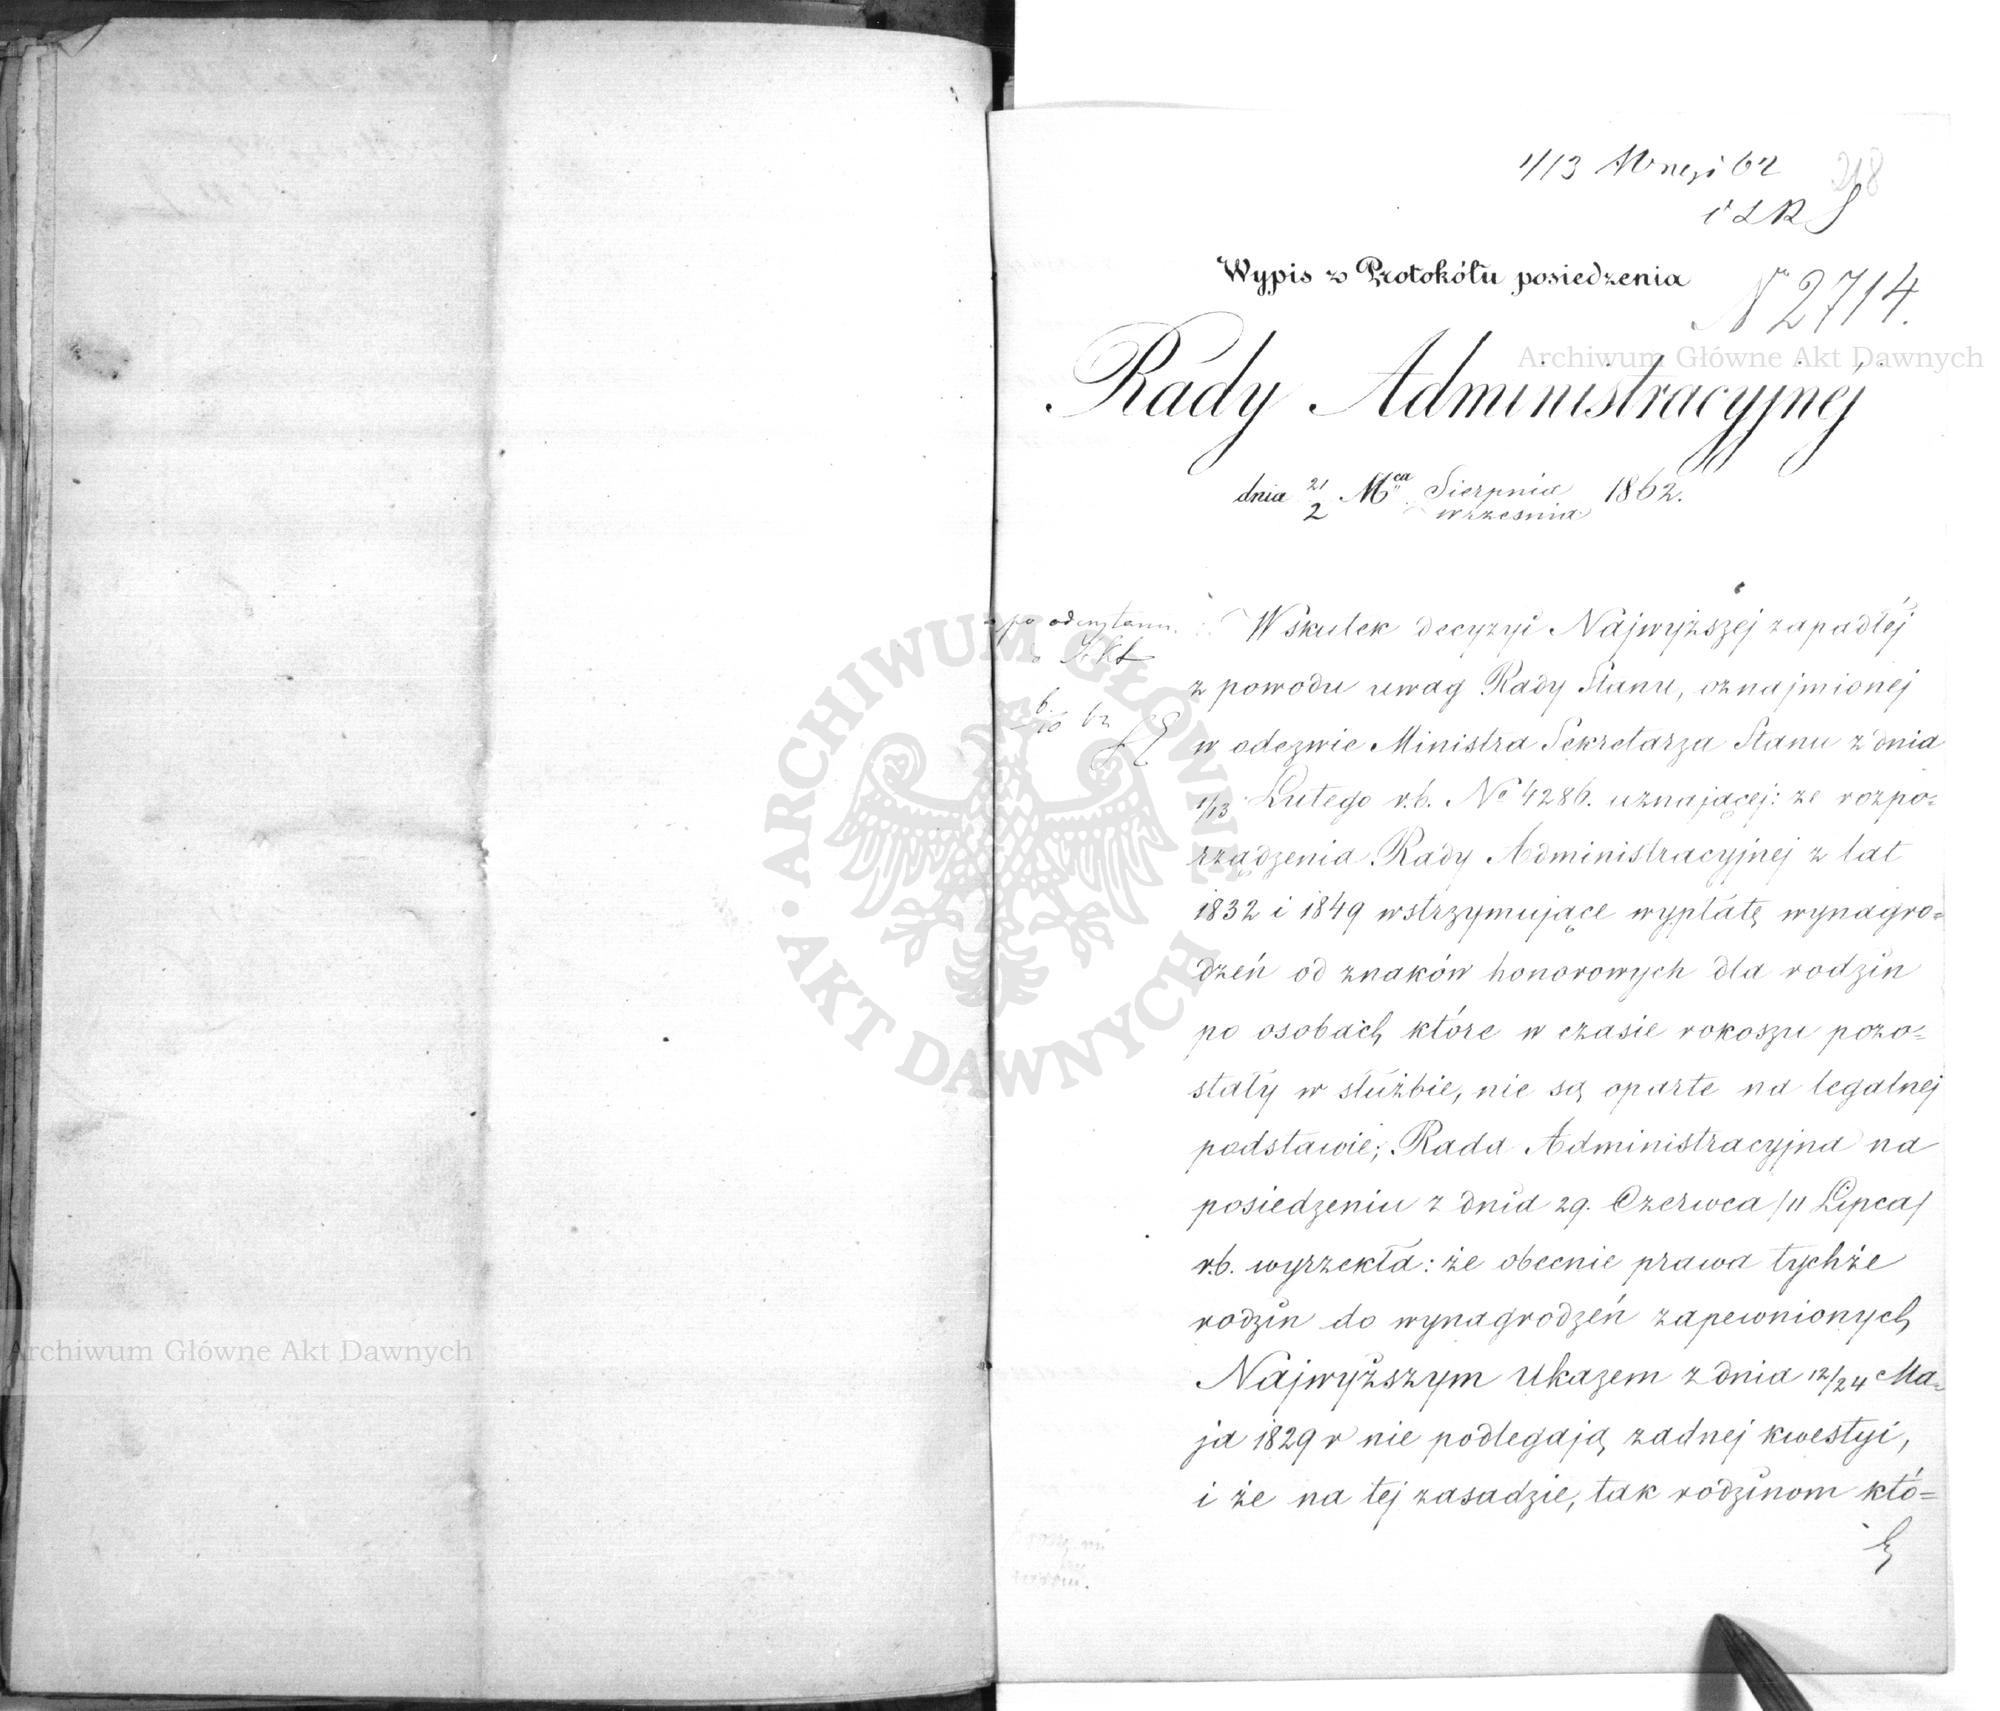 1/13 62
218
Wypis z Protokółu posiedzenia
N 2714.
Rady Administracyjnej
dnia 21/2 Mca Sierpnia/września 1862.
po odczytaniu
do Akt
W skutek decyzyi Najwyższej zapadłej
z powodu uwag Rady Stanu, oznajmionej
w odezwie Ministra Sekretarza Stanu z dnia
1/13 Lutego r.b. No 4286. uznającej: że rozpo=
rządzenia Rady Administracyjnej z lat
1832 i 1849 wstrzymujące wypłatę wynagro=
dzeń od znaków honorowych dla rodzin
po osobach, które w czasie rokoszu pozo=
stały w służbie, nie są oparte na legalnej
podstawie; Rada Administracyjna na
posiedzeniu z dnia 29. Czerwca /11 Lipca/
r.b. wyrzekła: że obecnie prawa tychże
rodzin do wynagrodzeń zapewnionych
Najwyższym Ukazem z dnia 12/24 Ma=
ja 1829 r nie podlegają żadnej kwestyi,
i że na tej zasadzie, tak rodzinom któ=
Archiwum Główne Akt Dawnych
Archiwum Główne Akt Dawnych
ARCHIWUM GŁÓWNE
AKT DAWNYCH